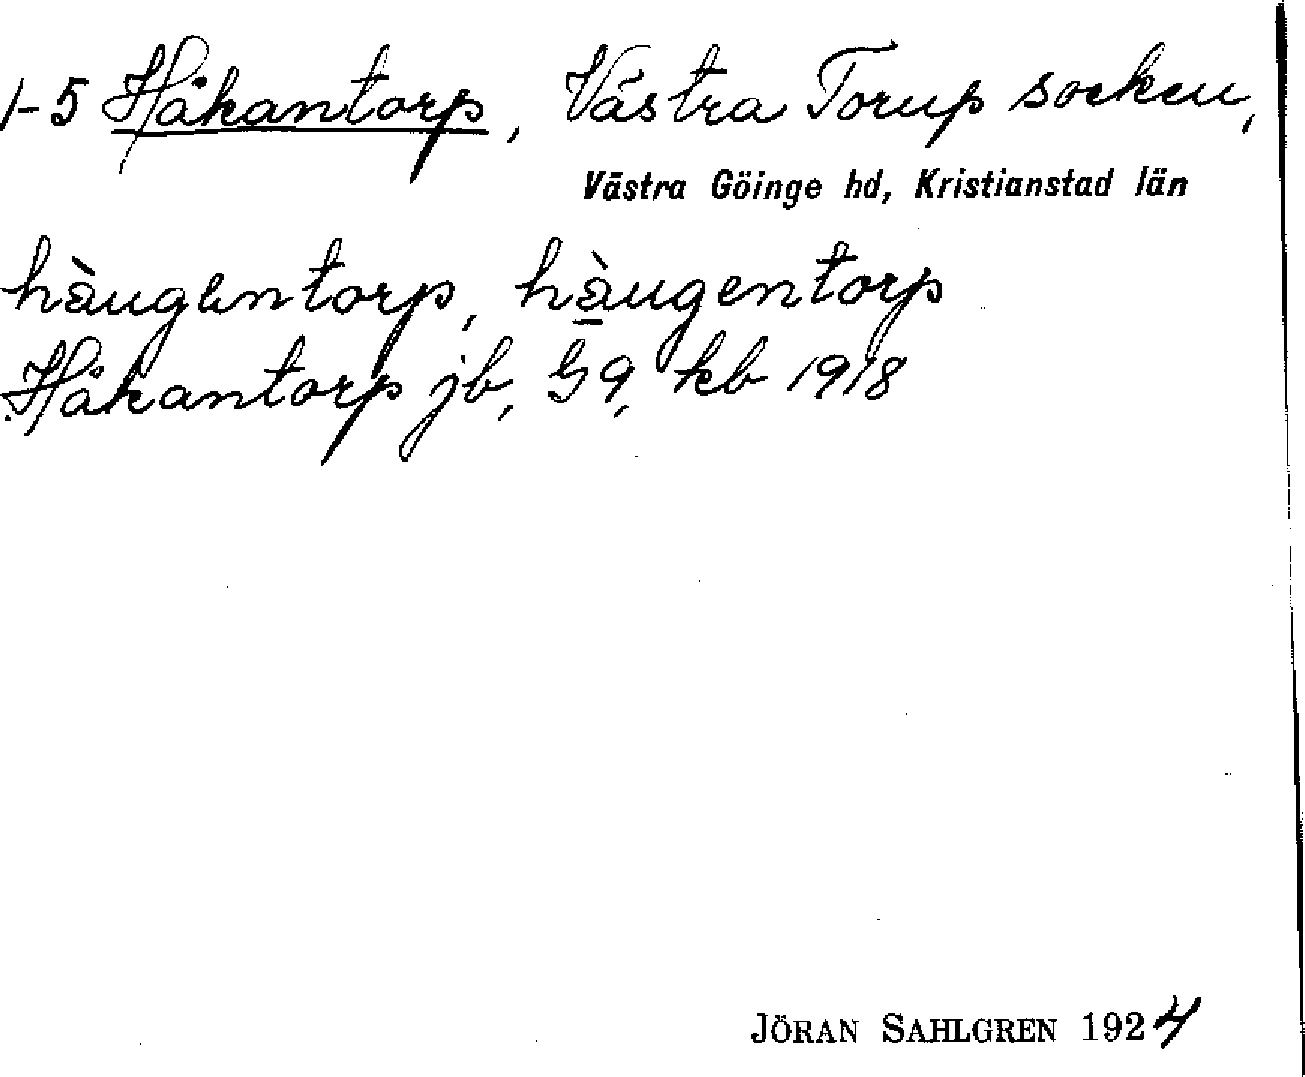 1-5 Håkantorp, Västra Torup socken,
Västra Göinge hd, Kristianstad län
hàugentorp, hàugentorp
Håkantorp jb, G9, kb 1918
JÖRAN SAHLGREN 1924